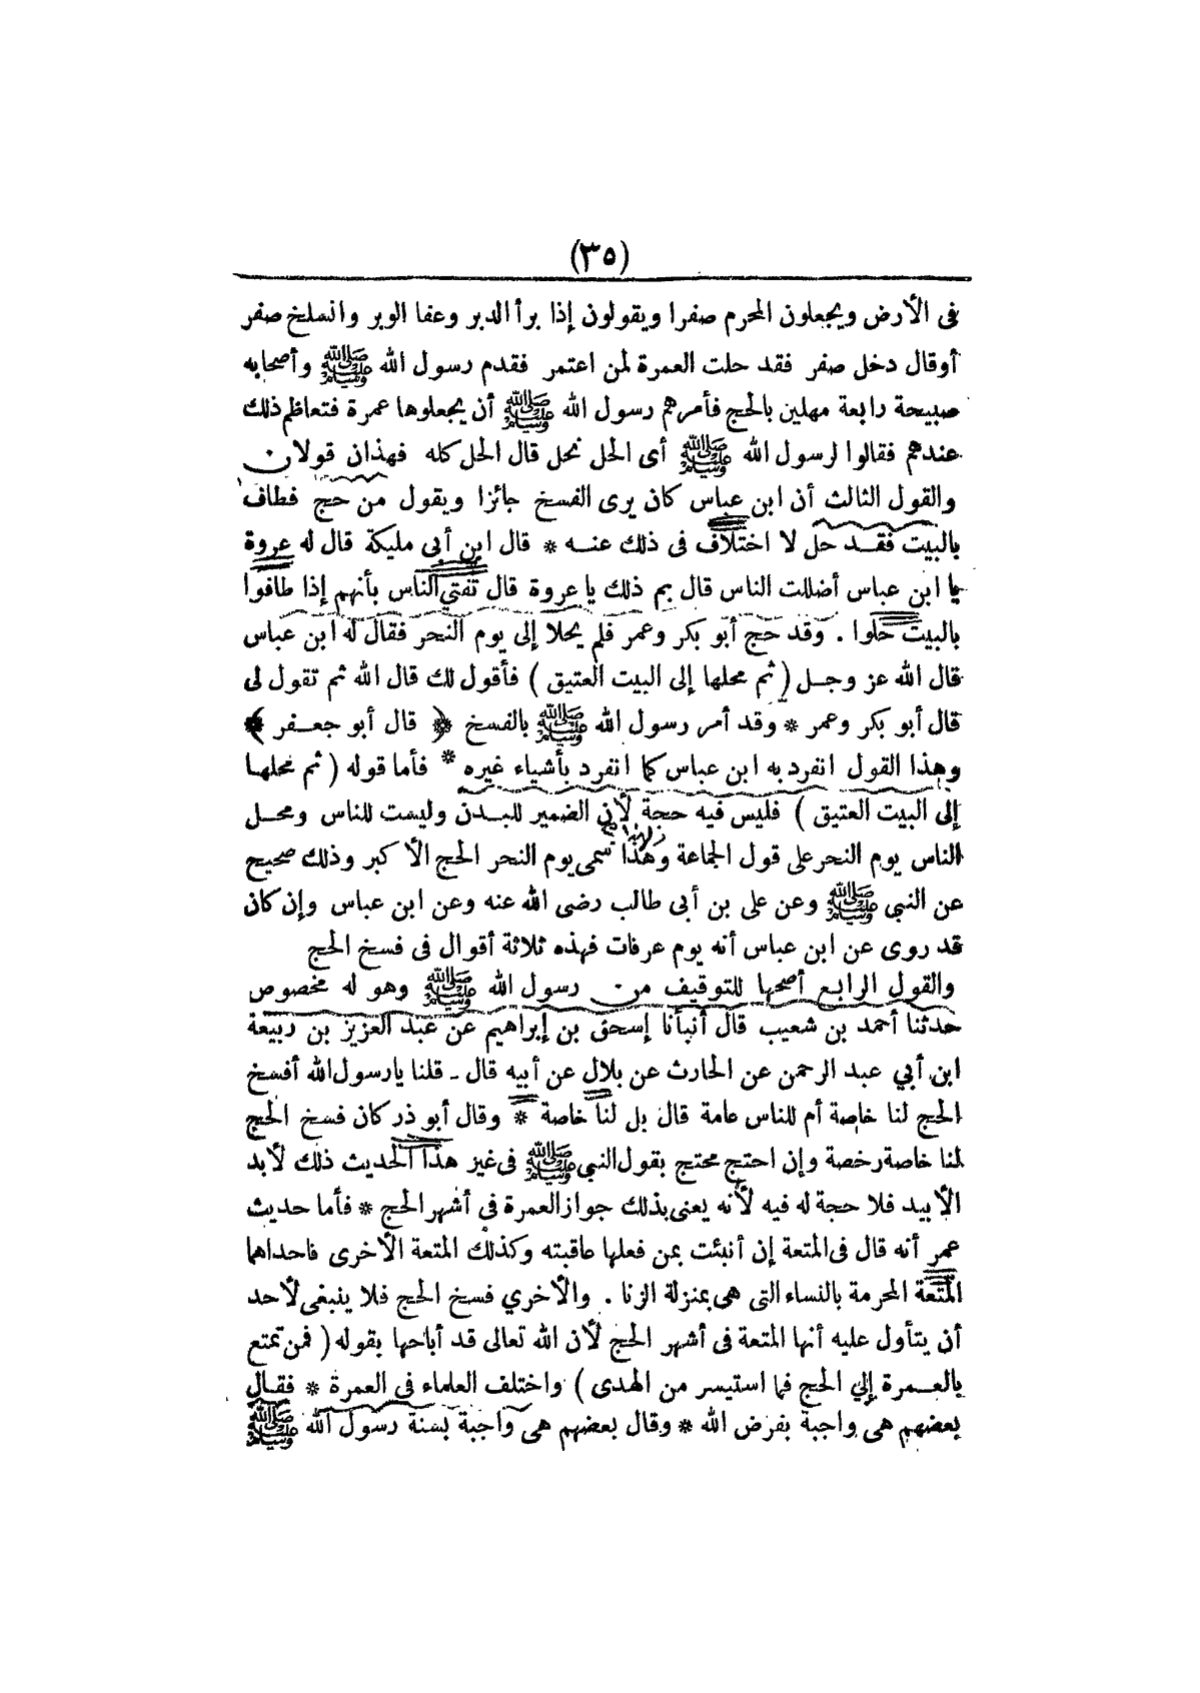 (٣٥)
فى الأرض ويجعلون المحرم صفرا ويقولون إذا برأ الدبر وعفا الوبر وانسلخ صفر
أوقال دخل صفر فقد حلت العمرة لمن اعتمر فقدم رسول الله ﷺ وأصحابه
صبيحة رابعة مهلين بالحج فأمرهم رسول الله ﷺ أن يجعلوها عمرة فتعاظم ذلك
عندهم فقالوا لرسول الله ﷺ أى الحل نحل قال الحل كله فهذان قولان
والقول الثالث أن ابن عباس كان يرى الفسخ جائزا ويقول من حج فطاف
بالبيت فقد حل لا اختلاف فى ذلك عنه * قال ابن أبى مليكة قال له عروة
يا ابن عباس أضللت الناس قال بم ذلك يا عروة قال تفتي الناس بأنهم إذا طافوا
بالبيت حلوا . وقد حج أبو بكر وعمر فلم يحلا إلى يوم النحر فقال له ابن عباس
قال الله عز وجل ( ثم محلها إلى البيت العتيق ) فأقول لك قال الله ثم تقول لى
قال أبو بكر وعمر * وقد أمر رسول الله ﷺ بالفسخ ﴿ قال أبو جعفر ﴾
وهذا القول انفرد به ابن عباس كما انفرد بأشياء غيره * فأما قوله ( ثم محلها
إلى البيت العتيق ) فليس فيه حجة لأن الضمير للبدن وليست للناس ومحل
الناس يوم النحر على قول الجماعة وهذا سمى يوم النحر الحج الأكبر وذلك صحيح
عن النبي ﷺ وعن على بن أبى طالب رضى الله عنه وعن ابن عباس وإن كان
قد روى عن ابن عباس أنه يوم عرفات فهذه ثلاثة أقوال فى فسخ الحج
والقول الرابع أصحها للتوقيف من رسول الله ﷺ وهو له مخصوص
حدثنا أحمد بن شعيب قال أنبأنا إسحق بن إبراهيم عن عبد العزيز بن ربيعة
ابن أبي عبد الرحمن عن الحارث عن بلال عن أبيه قال ـ قلنا يارسول الله أفسخ
الحج لنا خاصة أم للناس عامة قال بل لنا خاصة * وقال أبو ذر كان فسخ الحج
لنا خاصة رخصة وإن احتج محتج بقول النبي ﷺ فى غير هذا الحديث ذلك لأبد
الأبيد فلا حجة له فيه لأنه يعنى بذلك جواز العمرة فى أشهر الحج * فأما حديث
عمر أنه قال فى المتعة إن أنبئت بمن فعلها عاقبته وكذلك المتعة الأخرى فاحداهما
المتعة المحرمة بالنساء التى هى بمنزلة الزنا . والأخري فسخ الحج فلا ينبغى لأحد
أن يتأول عليه أنها المتعة فى أشهر الحج لأن الله تعالى قد أباحها بقوله ( فمن تمتع
بالعمرة إلي الحج فما استيسر من الهدى ) واختلف العلماء فى العمرة * فقال
بعضهم هى واجبة بفرض الله * وقال بعضهم هى واجبة بسنة رسول الله ﷺ